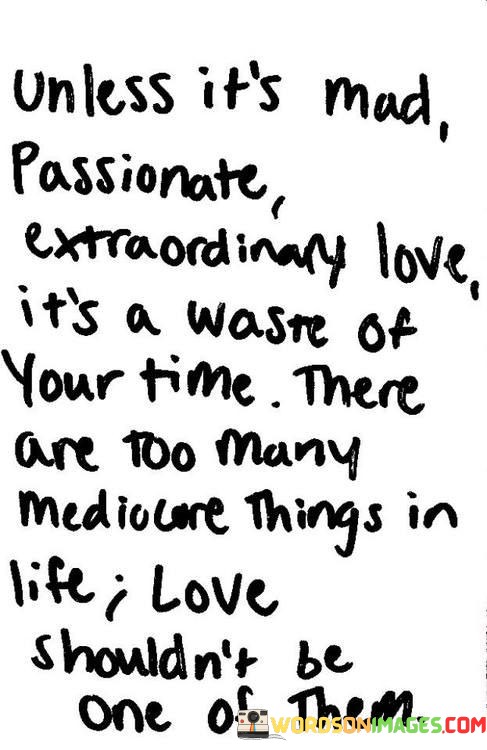 Unless it's mad,
Passionate,
extraordinary love,
it's a waste of
Your time. There
are too many
mediocre Things in
life; Love
shouldn't be
one of Them.
WORDSONIMAGES.COM